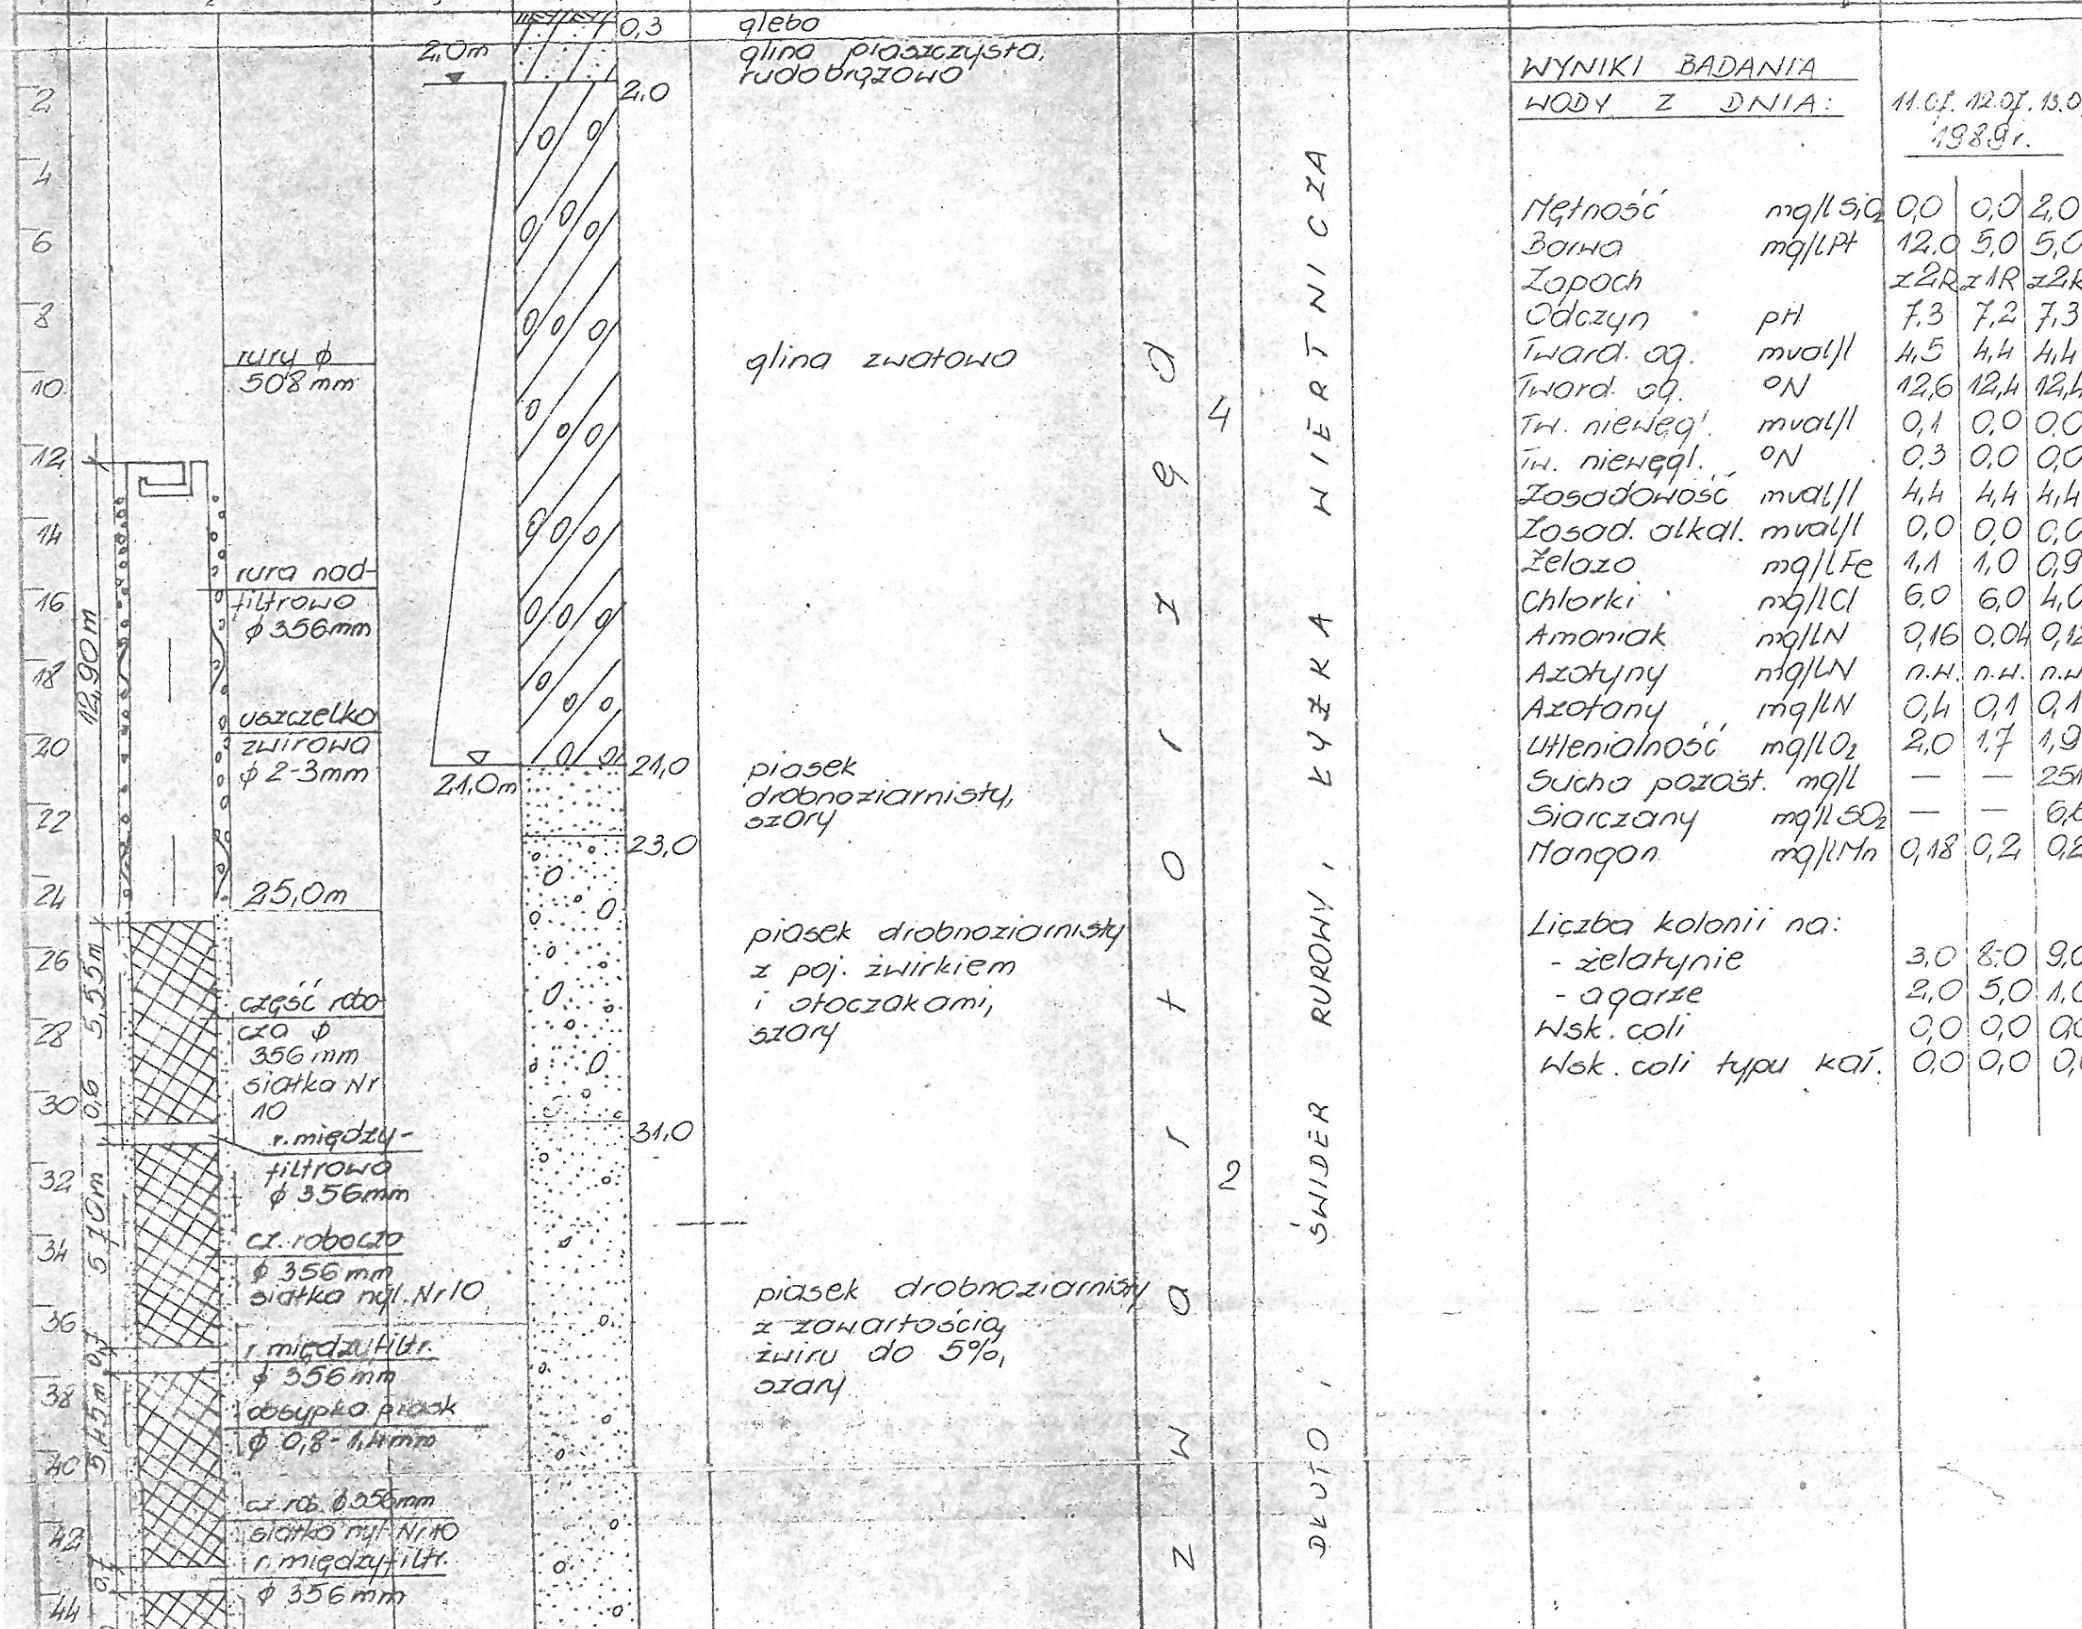 2
4
6
8
10
12
14
16
18
20
22
24
26
28
30
32
34
36
38
40
42
44
12,90m
5,55m
0,6
5,70m
0,7
5,45m
rury ϕ
508mm
rura nad-
filtrowa
ϕ 356mm
uszczelka
żwirowa
ϕ 2-3mm
25,0m
część robo-
cza ϕ
356 mm
siatka Nr
10
r. między-
filtrowa
ϕ 356mm
cz. robocza
ϕ 356 mm
siatka nyl. Nr 10
r. międzyfiltr.
ϕ 356mm
obsypka piask
ϕ 0,8-1,4mm
cz. rob. ϕ 356mm
siatka nyl Nr 10
r. międzyfiltr.
ϕ 356mm
2,0m
21,0m
0,3
2,0
21,0
23,0
31,0
gleba
glina piaszczysta,
rudobrązowa
glina zwałowa
piasek
drobnoziarnisty,
szary
piasek drobnoziarnisty
z poj. żwirkiem
i otoczakami,
szary
piasek drobnoziarnisty
z zawartością
żwiru do 5%,
szary
zwarto i rzęd
4
2
DŁUTO, ŚWIDER RUROWY, ŁYŻKA WIERTNICZA
WYNIKI BADANIA
WODY Z DNIA: 11.07. 12.07. 13.0
1989r.
Mętność mg/l SiO2 0,0 0,0 2,0
Barwa mg/l Pt 12,0 5,0 5,0
Zapach z2R z1R z2R
Odczyn pH 7,3 7,2 7,3
Tward. og. mval/l 4,5 4,4 4,4
Tward. og. °N 12,6 12,4 12,4
Tw. niewęgl. mval/l 0,1 0,0 0,0
Tw. niewęgl. °N 0,3 0,0 0,0
Zasadowość mval/l 4,4 4,4 4,4
Zasad. alkal. mval/l 0,0 0,0 0,0
Żelazo mg/l Fe 1,1 1,0 0,9
Chlorki mg/l Cl 6,0 6,0 4,0
Amoniak mg/l N 0,16 0,04 0,12
Azotyny mg/l N n.w. n.w. n.w
Azotany mg/l N 0,4 0,1 0,1
Utlenialność mg/l O2 2,0 1,7 1,9
Sucha pozost. mg/l — — 251
Siarczany mg/l SO2 — — 6,6
Mangan mg/l Mn 0,18 0,2 0,2
Liczba kolonii na:
- żelatynie 3,0 8,0 9,0
- agarze 2,0 5,0 1,0
Wsk. coli 0,0 0,0 0,0
Wsk. coli typu kał. 0,0 0,0 0,